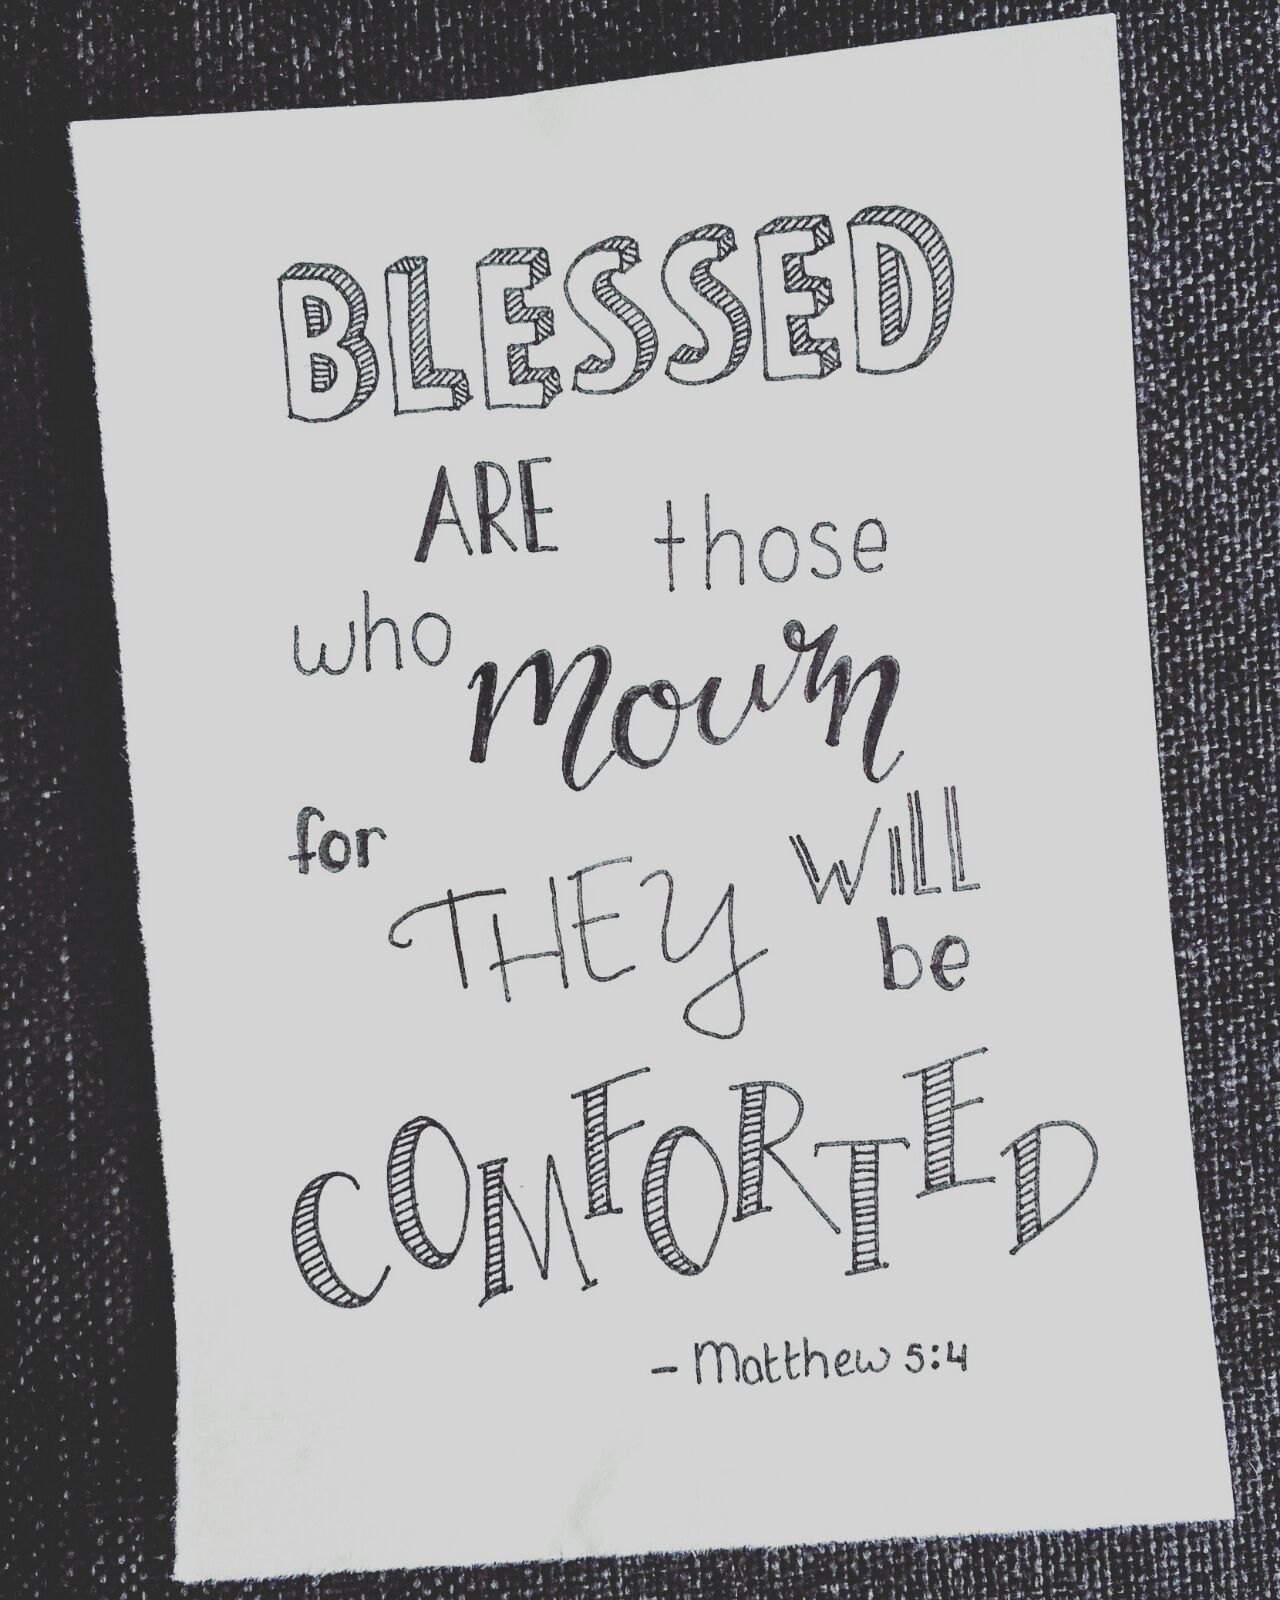 BLESSED
ARE those
who mourn
for THEY WiLL
be
COMFORTED
- Matthew 5:4